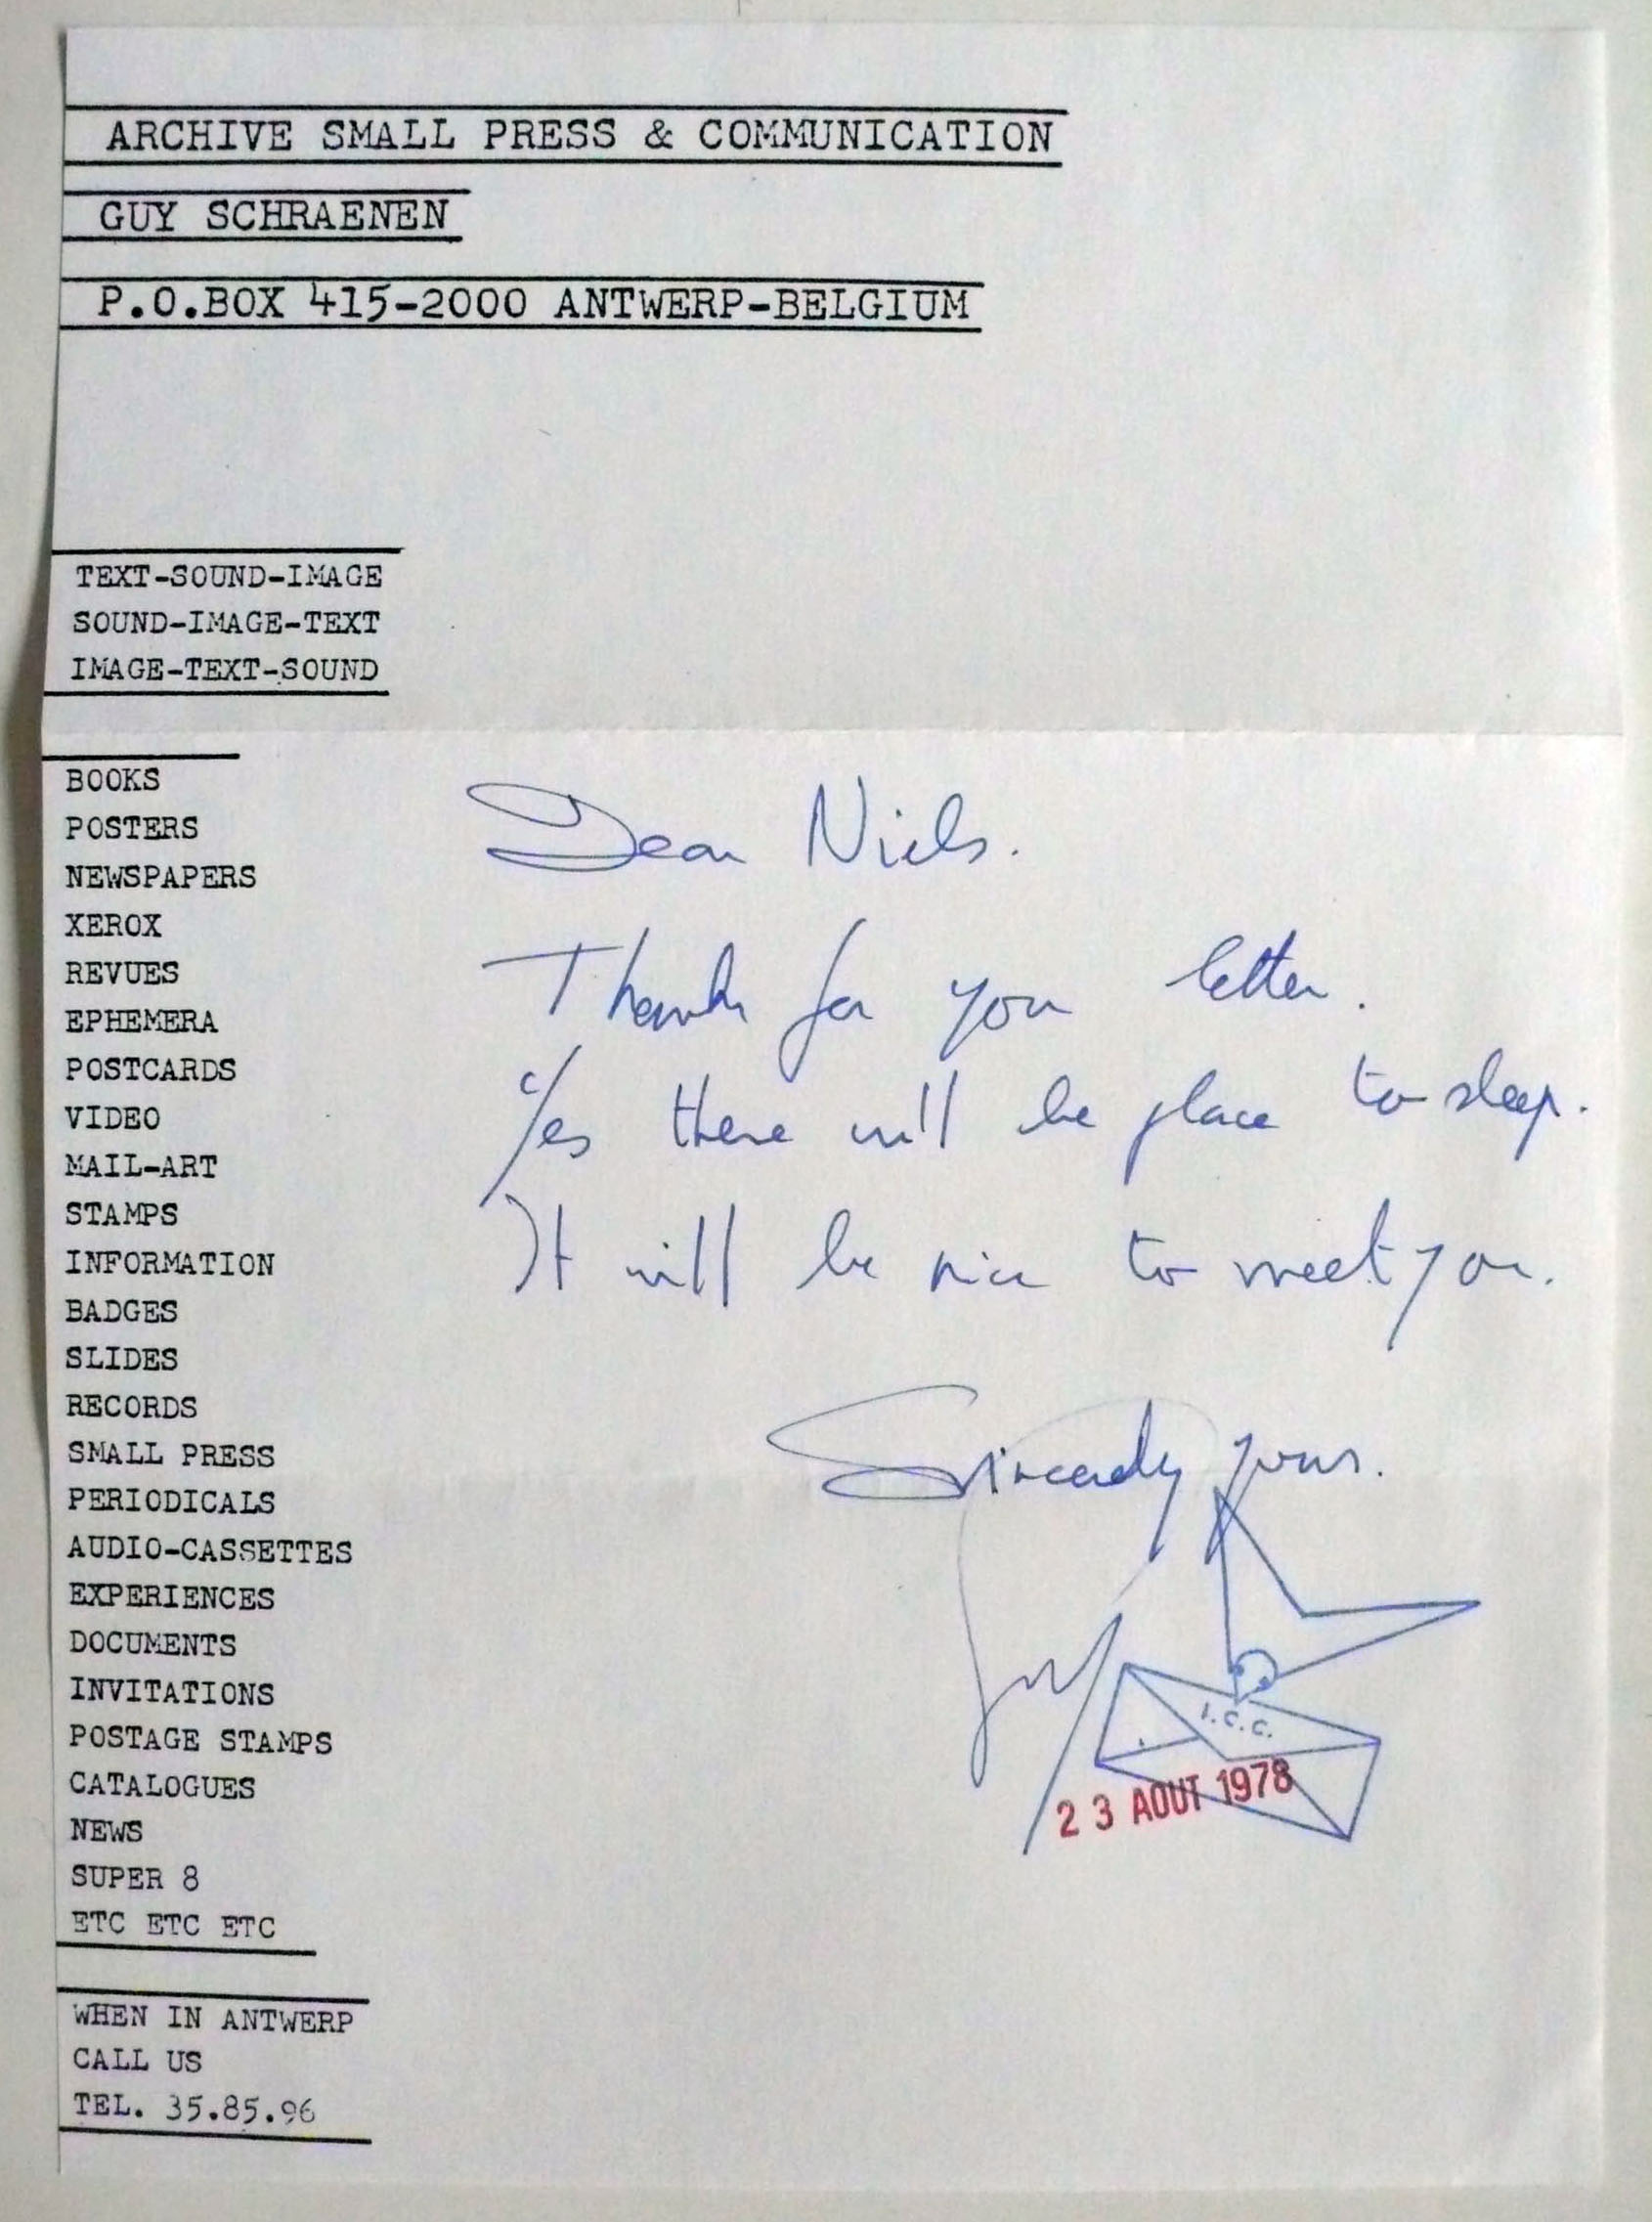 ARCHIVE SMALL PRESS & COMMUNICATION
GUY SCHRAENEN
P.O.BOX 415-2000 ANTWERP-BELGIUM
TEXT-SOUND-IMAGE
SOUND-IMAGE-TEXT
IMAGE-TEXT-SOUND
BOOKS
POSTERS
NEWSPAPERS
XEROX
REVUES
EPHEMERA
POSTCARDS
VIDEO
MAIL-ART
STAMPS
INFORMATION
BADGES
SLIDES
RECORDS
SMALL PRESS
PERIODICALS
AUDIO-CASSETTES
EXPERIENCES
DOCUMENTS
INVITATIONS
POSTAGE STAMPS
CATALOGUES
NEWS
SUPER 8
ETC ETC ETC
WHEN IN ANTWERP
CALL US
TEL. 35.85.96
Dear Niels.
Thanks for your letter.
Yes there will be place to sleep.
It will be nice to meet you.
Sincerely yours.
Guy
I.C.C.
23 AOUT 1978